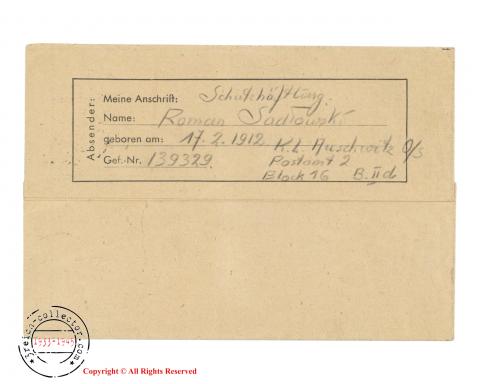 Absender:
Meine Anschrift: Schutzhäftling.
Name: Roman Sadlowski
geboren am: 17.2.1912 K.L. Auschwitz O/S
Gef.-Nr. 139329 Postamt 2
Block 16 B.IId
3reich-collector.com
1933-1945
Copyright © All Rights Reserved